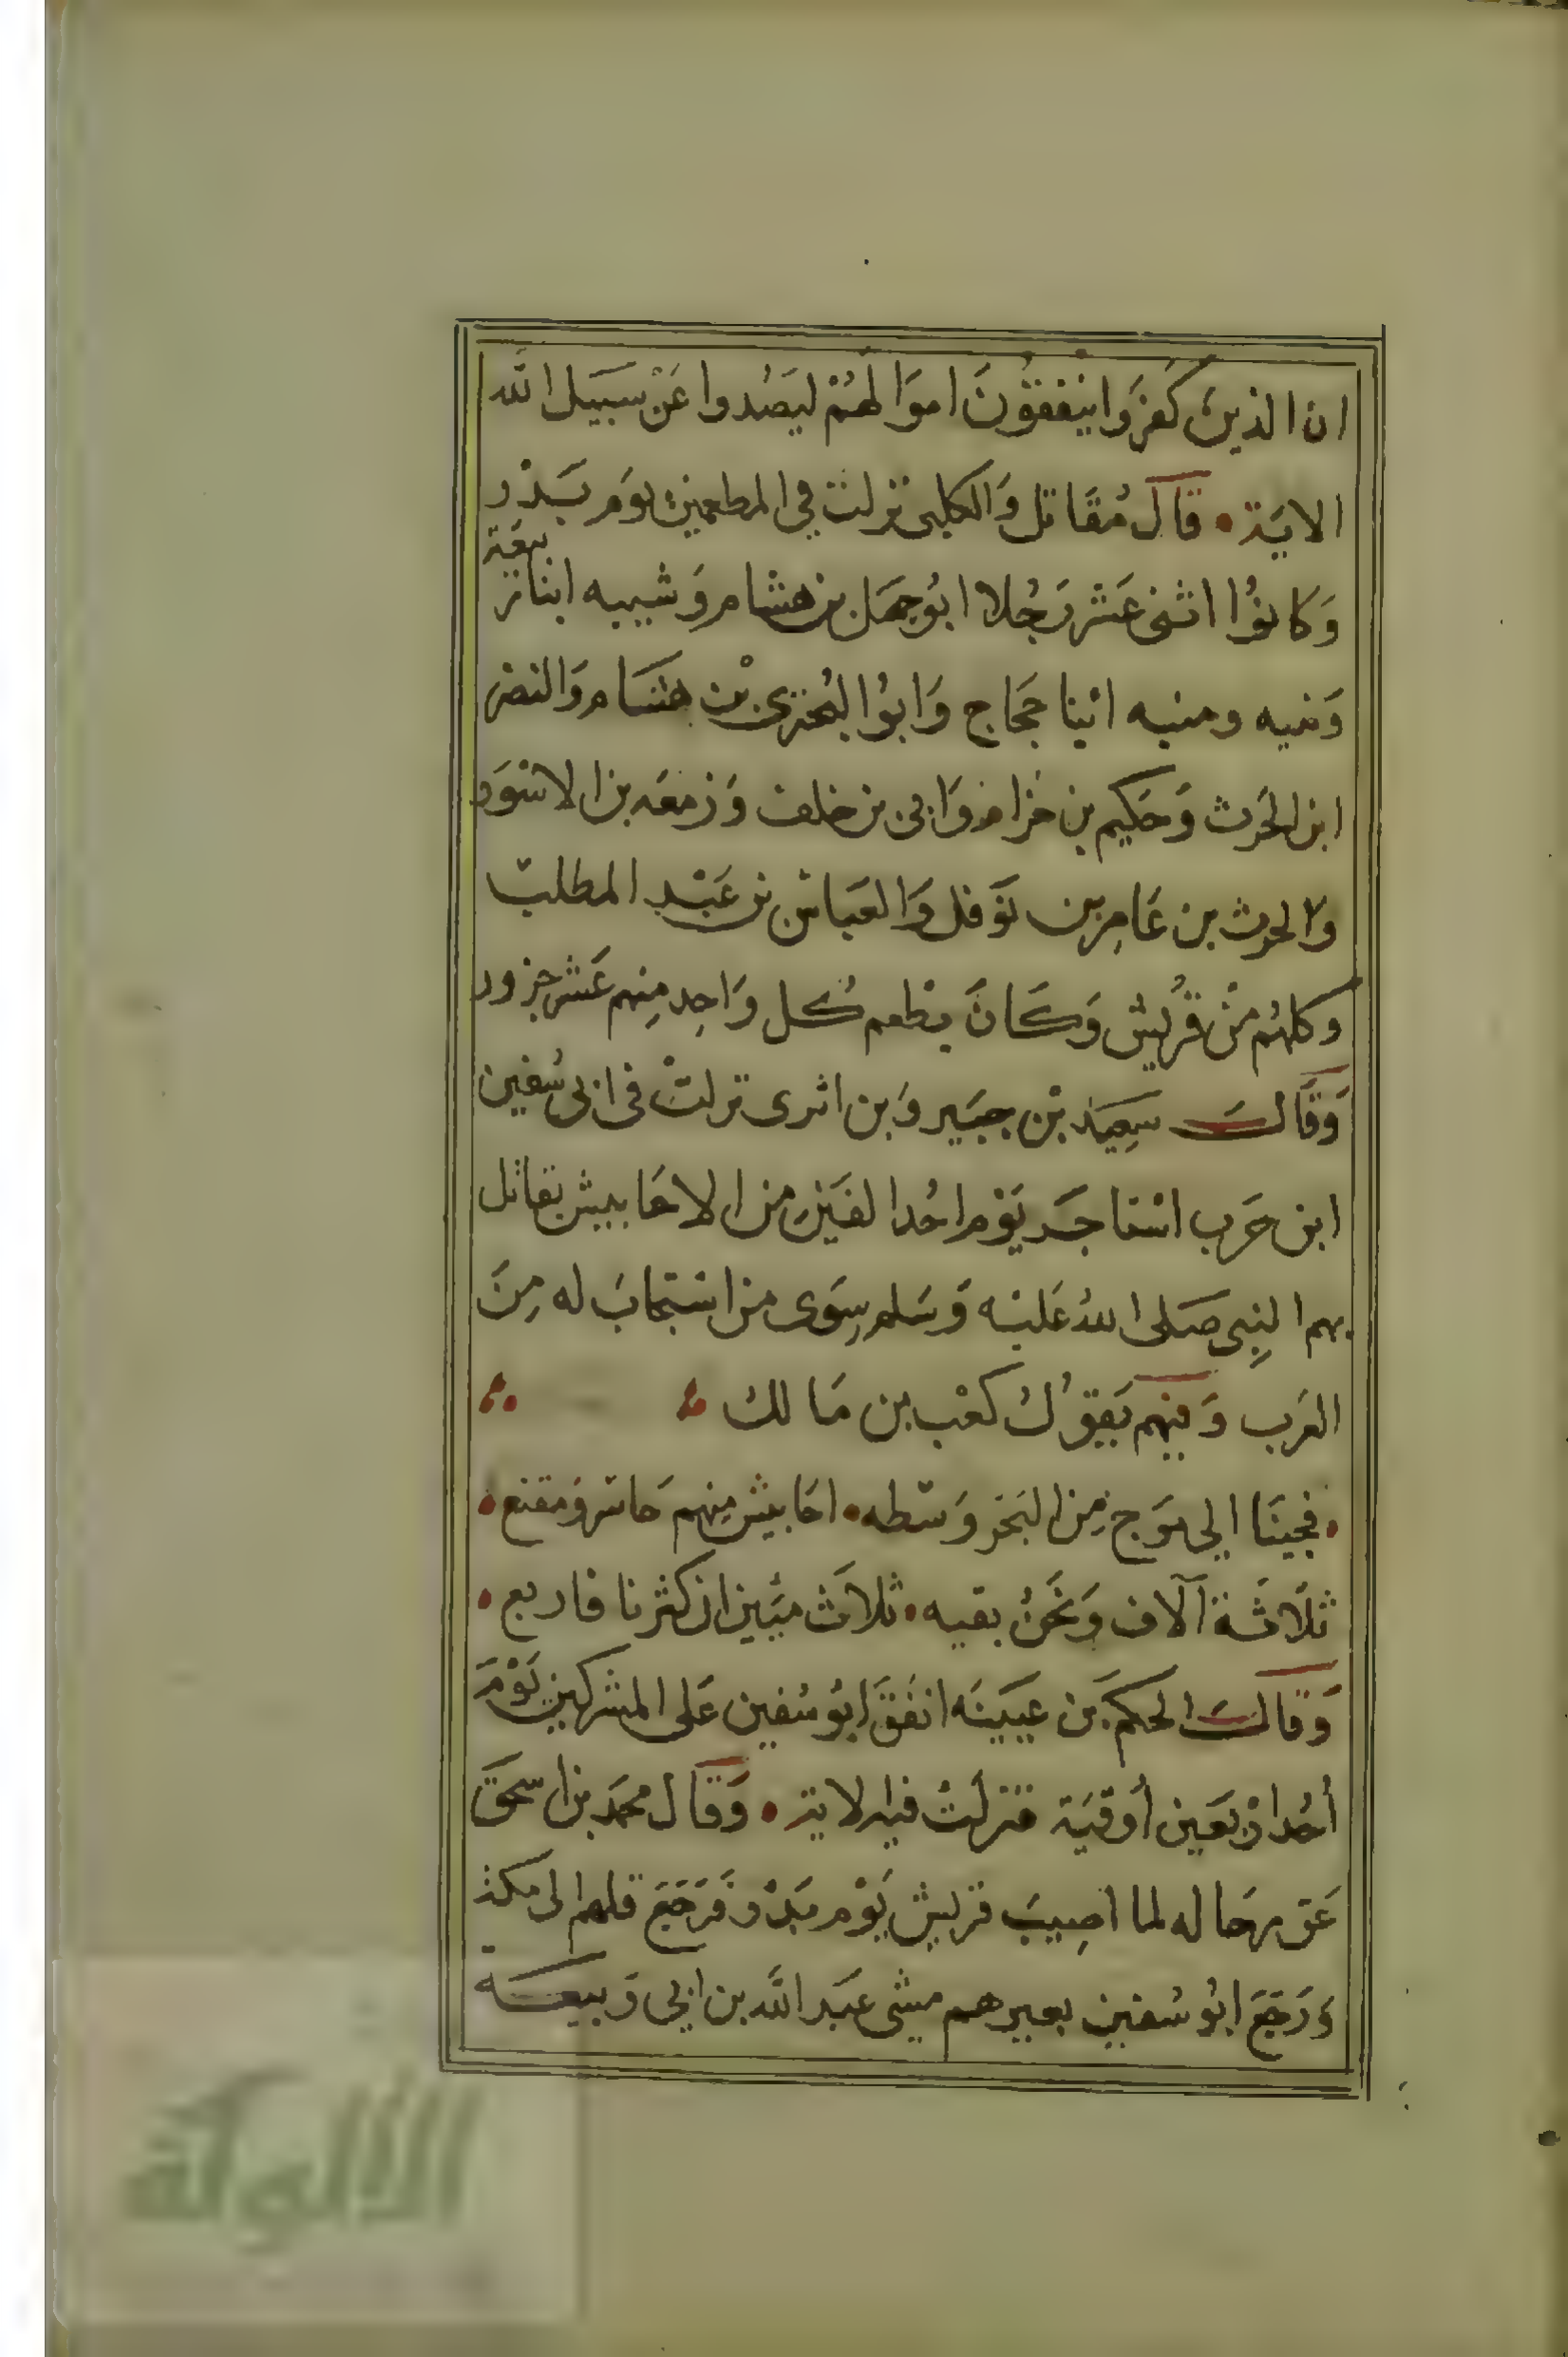 ان الذين كفروا ينفقون اموالهم ليصدوا عن سبيل الله
الاية • قال مقاتل والكلبى نزلت في المطعمين يوم بدر
وكانوا اثنى عشر رجلا ابو جهل بن هشام وشيبه ابنا ربيعة
ونبيه ومنبه ابنا حجاج وابوا البخترى بن هشام والنضر
ابن الحرث وحكيم بن حزام وابى بن خلف وزمعه بن الاسود
والحرث بن عامر بن نوفل والعباس بن عبد المطلب
وكلهم من قريش وكان يطعم كل واحد منهم عشر جزور
وقال سعيد بن جبير وبن اثرى نزلت فى ابى سفين
ابن حرب استاجر يوم احد الفين من الاحابيش يقاتل
بهم النبى صلى الله عليه وسلم سوى من استجاب له من
العرب وفيهم يقول كعب بن مالك
• فجينا الي موج من البحر وسطه • احابيش منهم حاسر ومقنع •
ثلاثة آلاف ونحن بقيه • ثلاث ميين ان كثرنا فاربع •
وقال الحكم بن عيينه انفق ابو سفين على المشركين يوم
أحد اربعين أوقية فنزلت فيه الاية • وقال محمد بن اسحق
عن رجاله لما اصيب قريش يوم بدر فرجع فلهم الى مكة
ورجع ابو سفين بعيرهم ميشى عبد الله بن ابي ربيعة
الألوكة